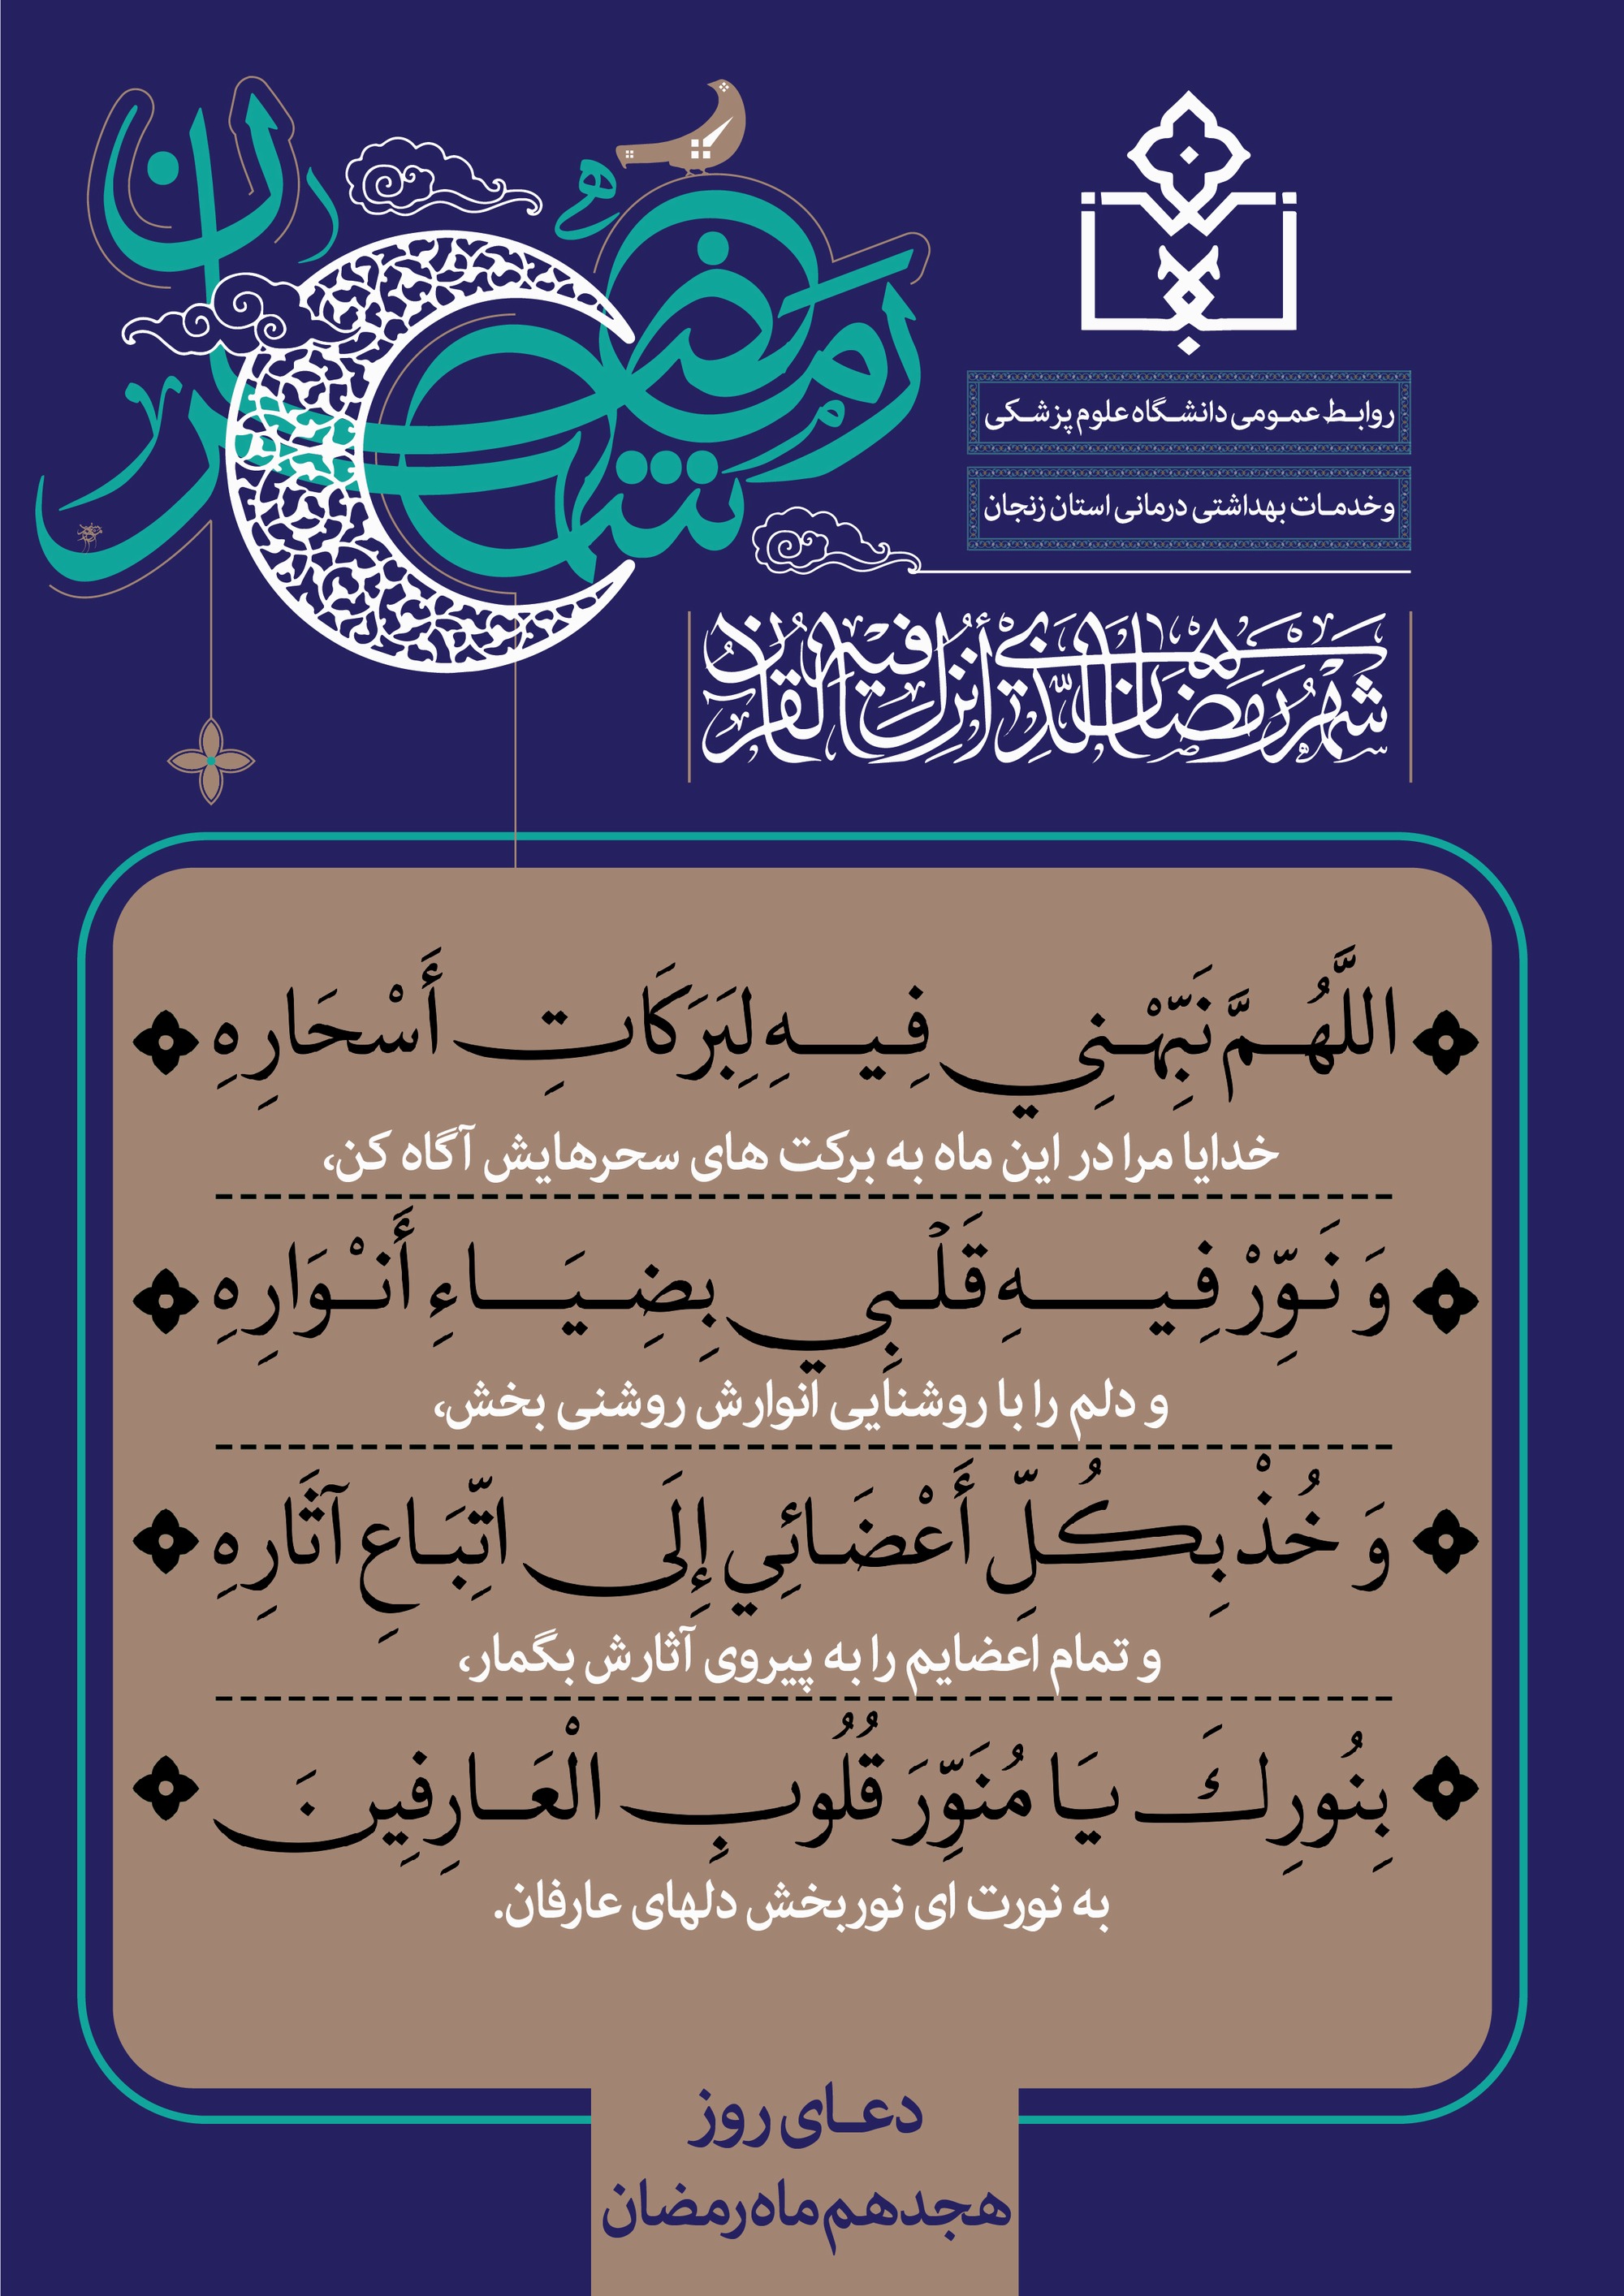 شهر رمضان
روابط عمومی دانشگاه علوم پزشکی
وخدمات بهداشتی درمانی استان زنجان
شَهْرُ رَمَضَانَ الَّذِي أُنْزِلَ فِيهِ الْقُرْآنُ
اللَّهُمَّ نَبِّهْنِي فِيهِ لِبَرَكَاتِ أَسْحَارِهِ
خدایا مرا در این ماه به برکت های سحرهایش آگاه کن،
وَ نَوِّرْ فِيهِ قَلْبِي بِضِيَاءِ أَنْوَارِهِ
و دلم را با روشنایی انوارش روشنی بخش،
وَ خُذْ بِكُلِّ أَعْضَائِي إِلَى اتِّبَاعِ آثَارِهِ
و تمام اعضایم را به پیروی آثارش بگمار،
بِنُورِكَ يَا مُنَوِّرَ قُلُوبِ الْعَارِفِينَ
به نورت ای نوربخش دلهای عارفان.
دعای روز
هجدهم ماه رمضان